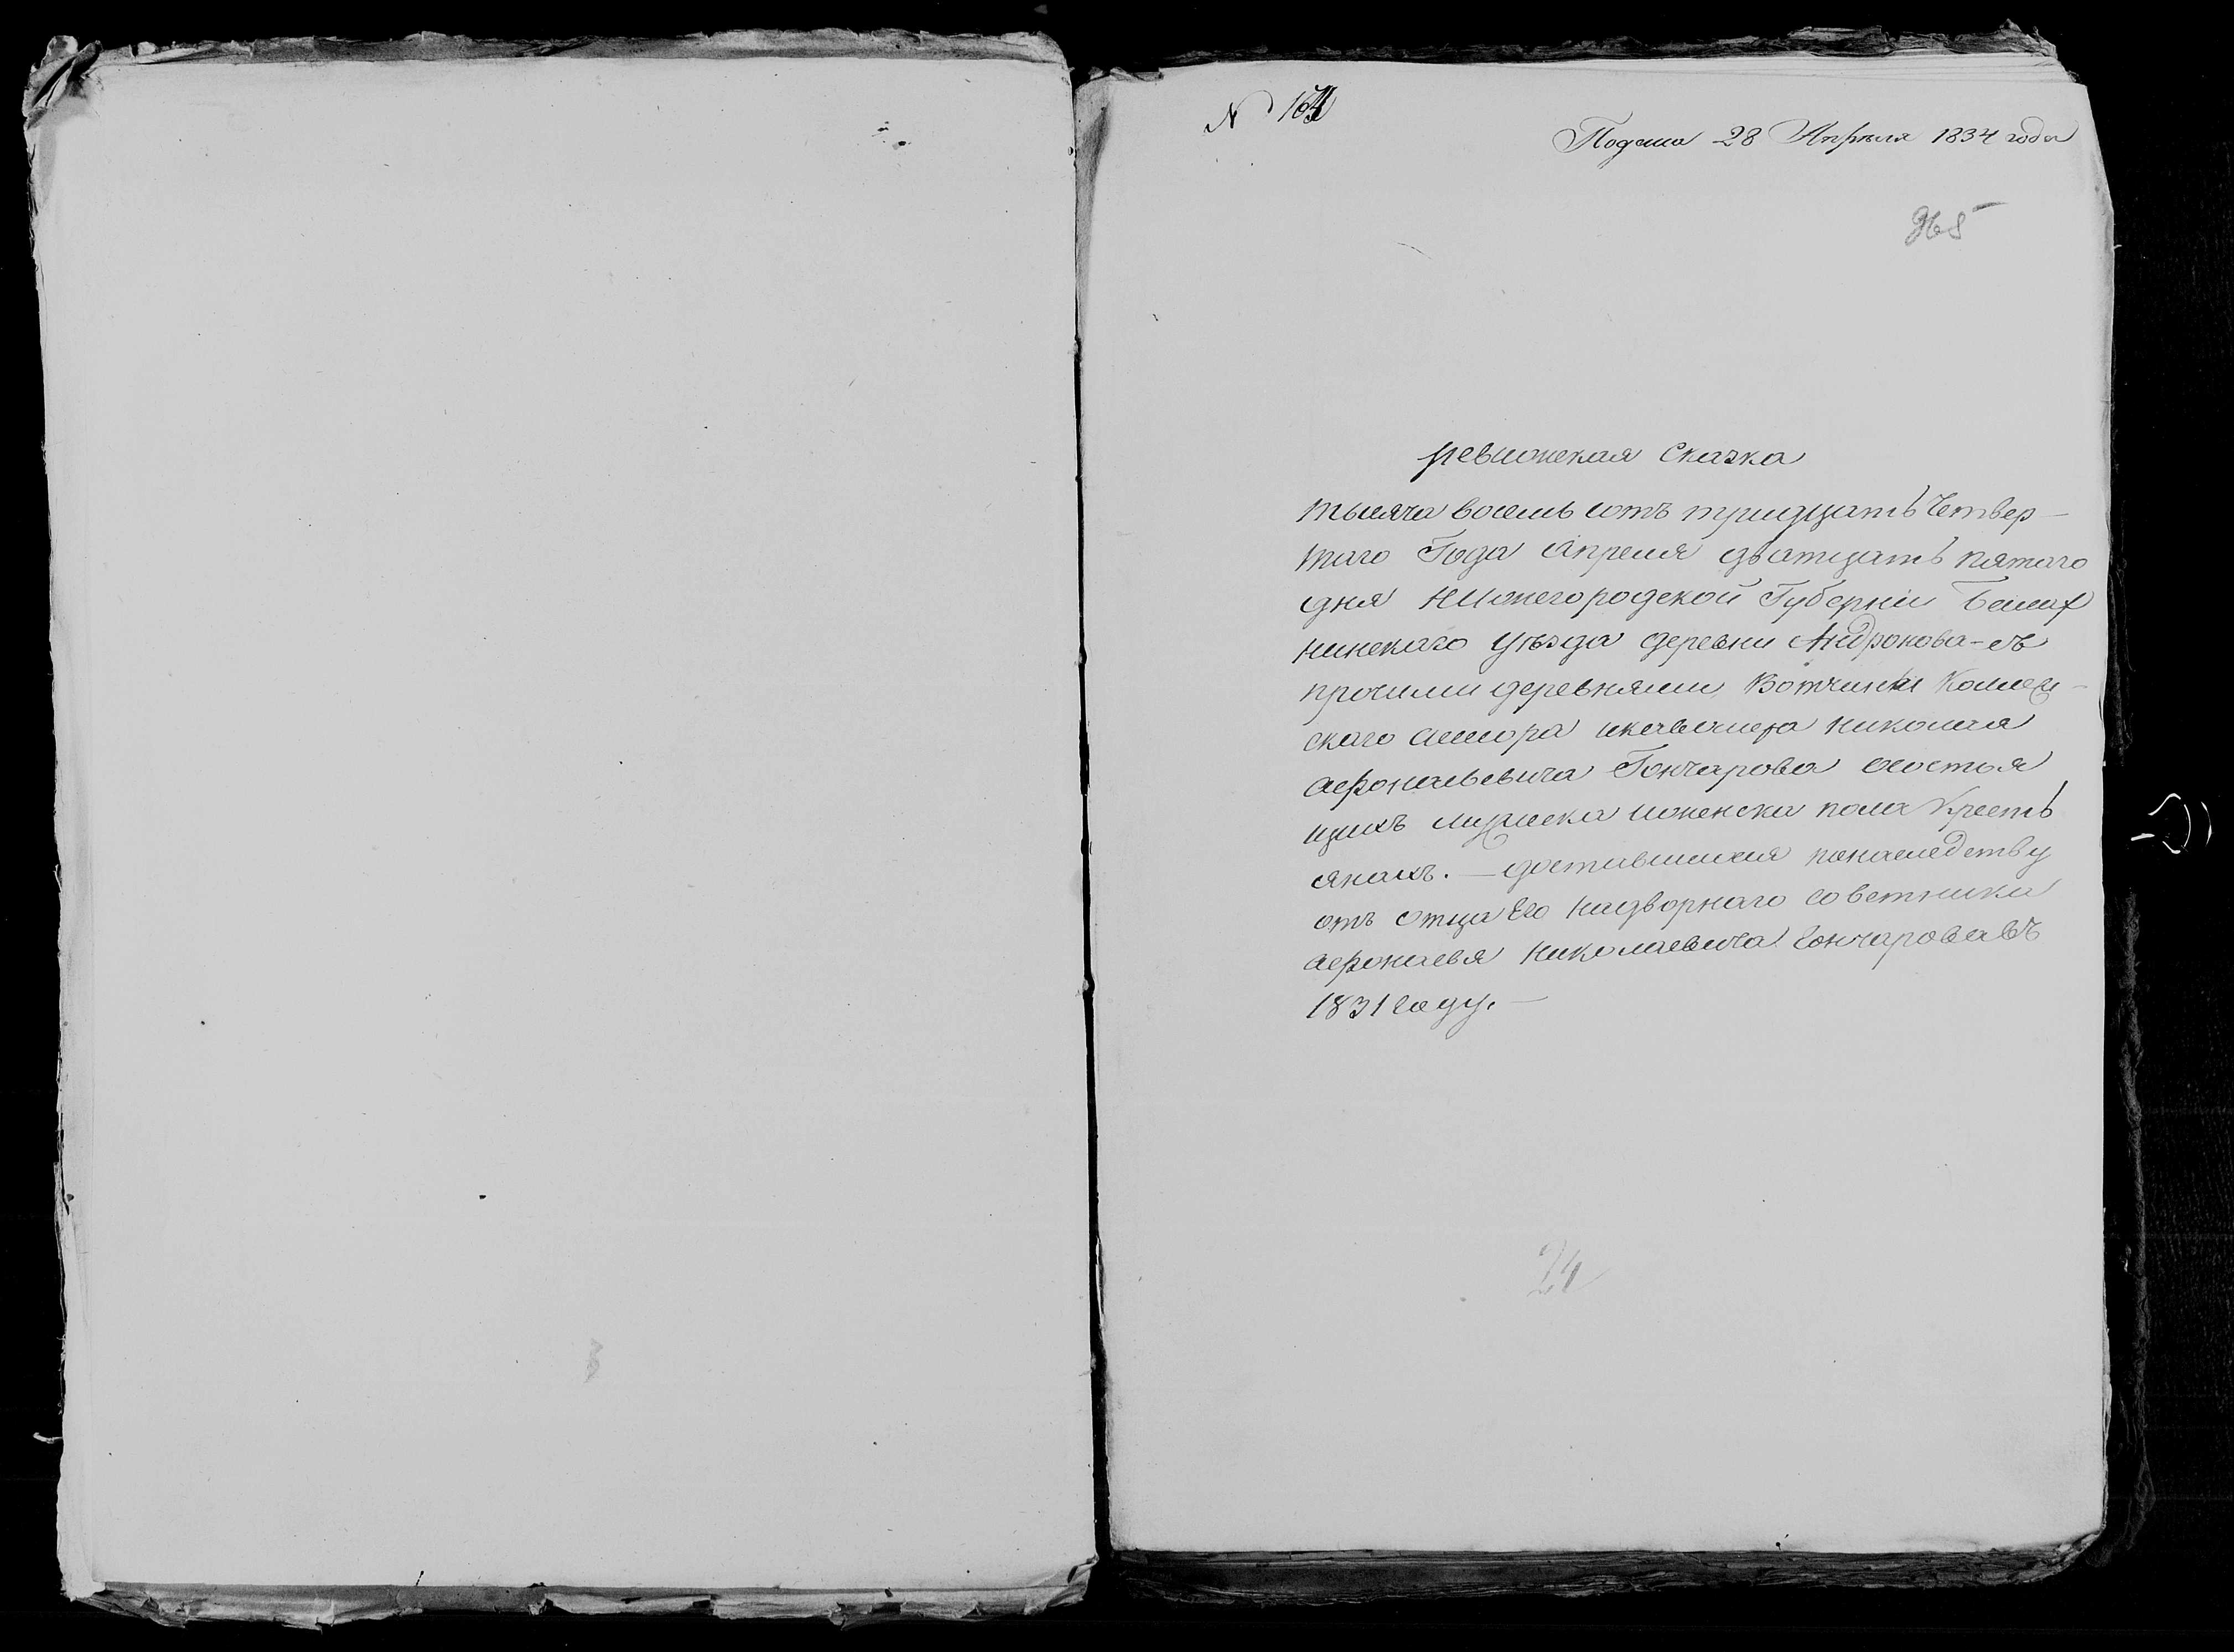 N 164
Подана 28 Апреля 1834 года
965
ревижская Сказка
тысяча восемь сотъ тридцать Четвер-
таго Года Апреля дватцать пятаго
дня Нижегородской Губерніи Балах
нинскаго уѣзда деревни Андронова-съ
прочими деревнями, Вотчины Коллеж-
скаго ассесора икавалера николая
афонасьевича Гончарова Осостоя
щихъ мужеска иженска пола Кресть
янахъ. — доставшихся понаследству
отъ отца Его надворнаго советника
афонасья николаевича гончарова въ
1831 году. —
24